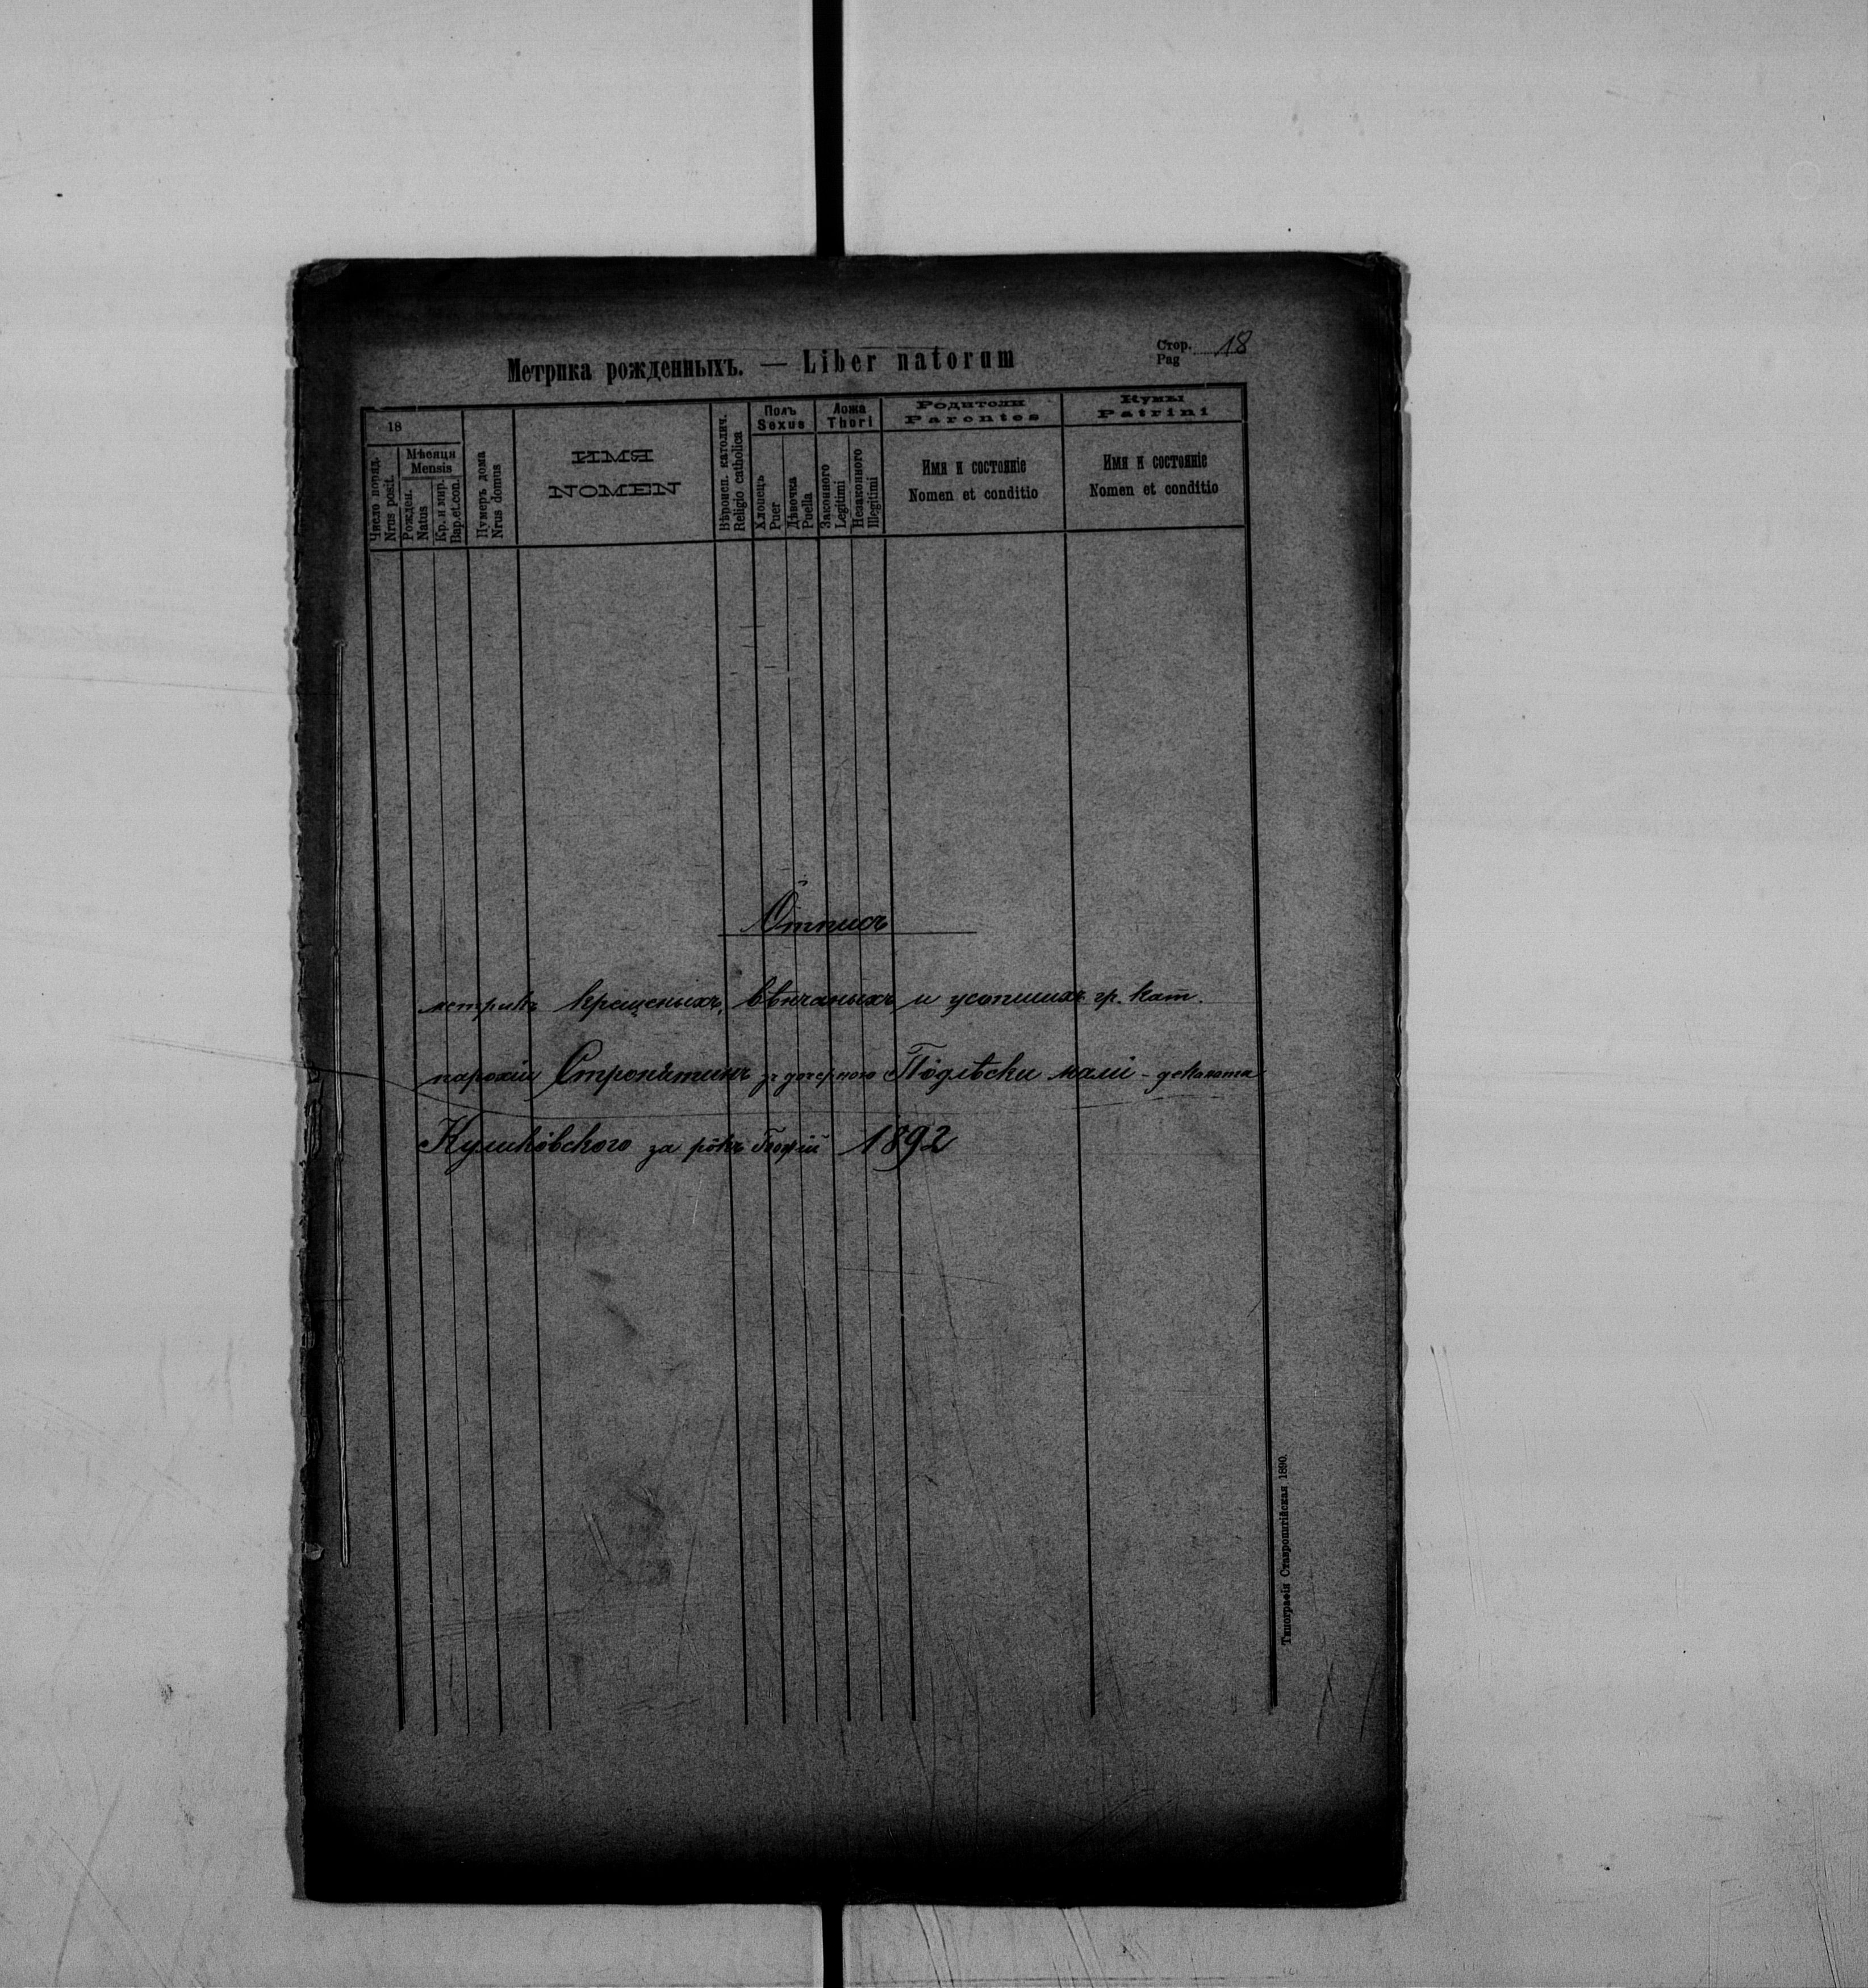 Метрика рожденныхъ. — Liber natorum
Стор. 18
Pag
18
Число поряд.
Nrus posit.
Мѣсяця
Mensis
Рожден.
Natus
Кр. и мир.
Bap.et.con.
Нумеръ дома
Nrus domus
ИМЯ
NOMEN
Вѣроисп. католич.
Religio catholica
Полъ
Sexus
Хлопець
Puer
Дѣвочка
Puella
Ложа
Thori
Законного
Legitimi
Незаконного
Illegitimi
Родители
Parentes
Имя и состояніе
Nomen et conditio
Кумы
Patrini
Имя и состояніе
Nomen et conditio
Ôтписъ
метрикъ крещеныхъ, вѣнчаныхъ и усопшихъ гр. кат.
парохіи Стронятинъ зъ дочерною Підлѣски малі - деканата
Куликôвского за рôкъ 1892
Типографія Ставропигійская 1890.